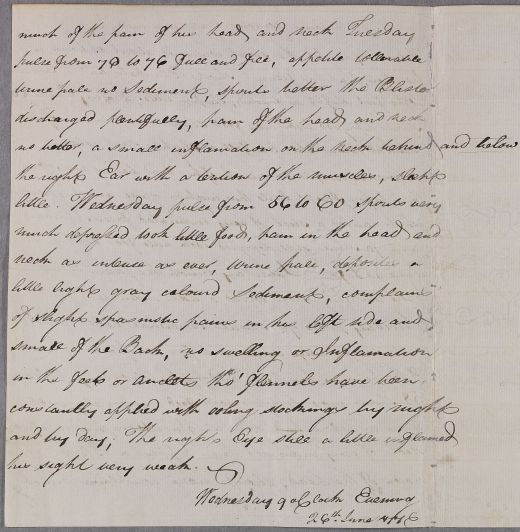 much of the pain of his head and neck Tuesday
pulse from 70 to 76 full and free, appetite tollerable
urine pale no Sediment, spirits better the Blister
discharged plentifully, pain of the head and neck
no better, a small inflamation on the neck behind and below
the right Ear with a tention of the muscles, slept
little. Wednesday pulse from 56 to 60 spirits very
much depressed took little food, pain in the head and
neck as intense as ever, Urine pale, deposites a
little light gray colourd Sediment, complains
of slight spasmstic pains in his left side and
small of the Back, no swelling or Inflamation
in the feet or Ancles tho' flannels have been
constantly applied with stockings by night
and by day, The right Eye still a little inflamed
his sight very weak.
Wednesday 9 oClock Evening
26th June